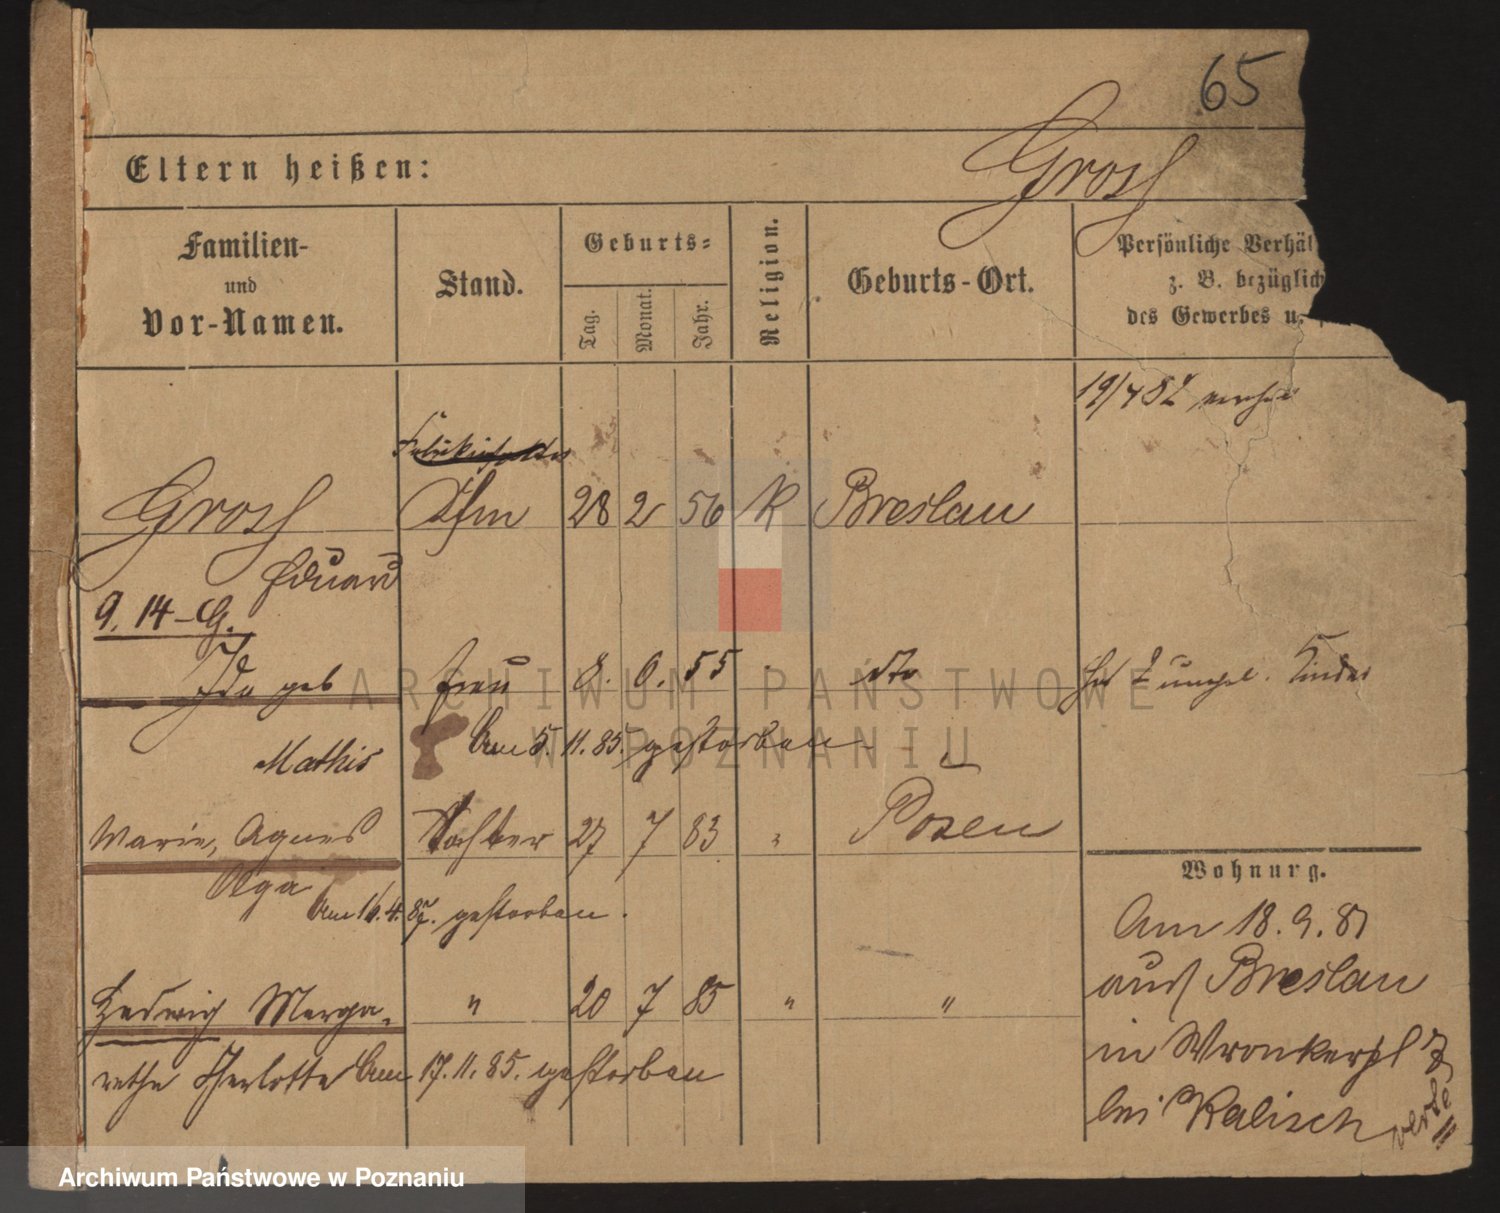 65
Eltern heißen:
Grosh
Familien-
und
Vor-Namen.
Stand.
Geburts-
Tag.
Monat.
Jahr.
Religion.
Geburts-Ort.
Persönliche Verhäl
z. B. bezüglich
des Gewerbes u.
19/4 82
Grosh
28 2 56 K Breslau
Eduard
9. 14 - G.
Ida geb Frau 8. 6. 55 dto
Hat 2 unehel. Kinder
Mathis
Am 5. 11. 85. gestorben
Marie, Agnes Tochter 27 7 83 " Posen
Olga
Am 16. 4. 87. gestorben.
Wohnung.
Am 18. 9. 81
aus Breslau
in Wronkerpl 7
bei Kalisch
Hedwig Marga- " 20 7 85 " "
rethe Charlotte Am 17. 11. 85. gestorben
ARCHIWUM PAŃSTWOWE
W POZNANIU
Archiwum Państwowe w Poznaniu